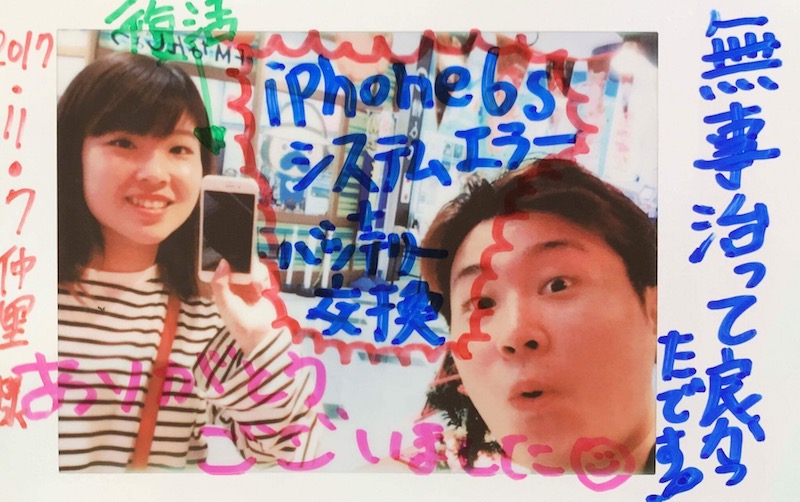 復活
2017.11.7 仲里
iPhone6s
システムエラー
と
バッテリー
交換
無事治って良かっ
たです。
ありがとう
ございました